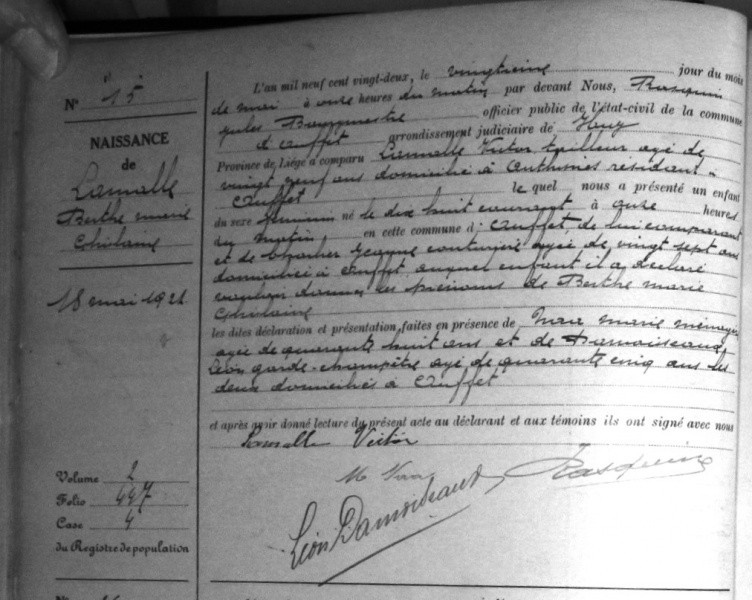 N° 15
NAISSANCE
de
Lamalle
Berthe marie
Ghislaine
18 mai 1922
Volume 2
Folio 447
Case 4
du Registre de population
L'an mil neuf cent vingt-deux, le vingtième jour du mois
de mai à onze heures du matin par devant Nous, Rasquin
Jules Bourgmestre officier public de l'état-civil de la commune
d'Ouffet arrondissement judiciaire de Huy
Province de Liége a comparu Lamalle Victor tailleur agé de
vingt neuf ans domicilié à Anthisnes résidant à
Ouffet le quel nous a présenté un enfant
du sexe féminin né le dix huit courant à onze heures
du matin, en cette commune d'Ouffet, de lui comparant
et de couturière agée de vingt sept ans
domiciliée à Ouffet auquel enfant il a déclaré
vouloir donner les prénoms de Berthe marie
Ghislaine
les dites déclaration et présentation faites en présence de marie ménagère
agée de quarante huit ans et de Damoiseaux
Léon garde-champêtre agé de quarante cinq ans les
deux domiciliés à Ouffet
et après avoir donné lecture du présent acte au déclarant et aux témoins ils ont signé avec nous
Lamalle Victor
M
Léon Damoiseaux
Rasquin